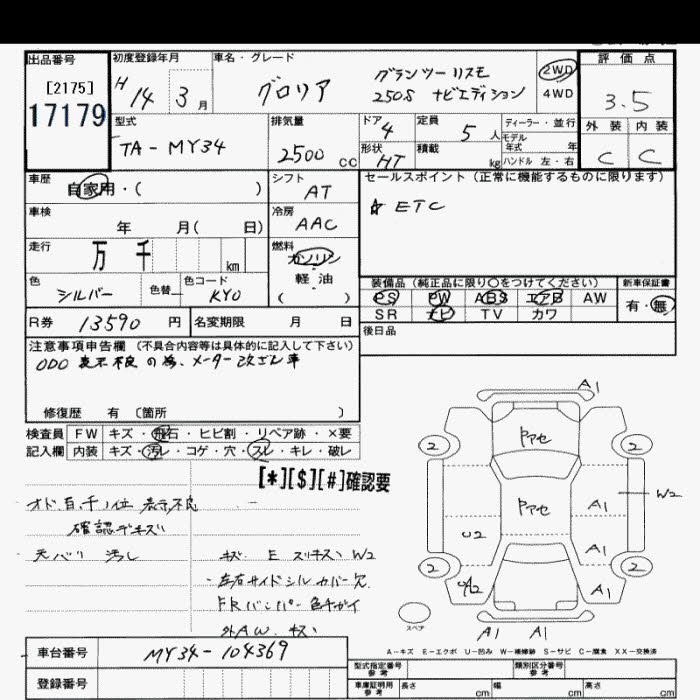 出品番号 初度登録年月 車名・グレード 評価点
[2175]
17179
H14 3月 グロリア グランツーリスモ
250S ナビエディション
2WD
4WD
3.5
外装 内装
C C
型式 排気量 ドア 定員 ディーラー・並行
TA-MY34 2500cc 4 5人
モデル年式 年
形状 積載 ハンドル 左・右
HT kg
車歴 シフト セールスポイント(正常に機能するものに限ります)
自家用・( ) AT
☆ ETC
車検 冷房
年 月( 日) AAC
走行 燃料
万 千 km ガソリン
軽油
( )
色 色替 色コード
シルバー KYO
装備品(純正品に限り○をつけてください) 新車保証書
PS PW ABS エアB AW 有・無
SR ナビ TV カワ
R券 13590円 名変期限 月 日
後日品
注意事項申告欄(不具合内容等は具体的に記入して下さい)
ODO 表示不良の為、メーター改ざん車
修復歴 有 〔箇所 〕
検査員 FW キズ・飛石・ヒビ割・リペア跡・×要
記入欄 内装 キズ・汚レ・コゲ・穴・スレ・キレ・破レ
[*][$][#]確認要
オド百、千ノ位 表示不良
確認デキズ
天バリ 汚レ
キズ E スリキズ W2
左右サイドシルカバー欠
FRバンパー色チガイ
外AW キズ
A1
2 2
アセ
W2
アセ A1
U2 A1
2 2
A2 A1
スペア
A1 A1
A-キズ E-エクボ U-凹み W-補修跡 S-サビ C-腐食 XX-交換済
車台番号 MY34-104369
登録番号
型式指定番号 参考 類別区分番号 参考
車庫証明用 参考 長さ cm 幅 cm 高さ cm